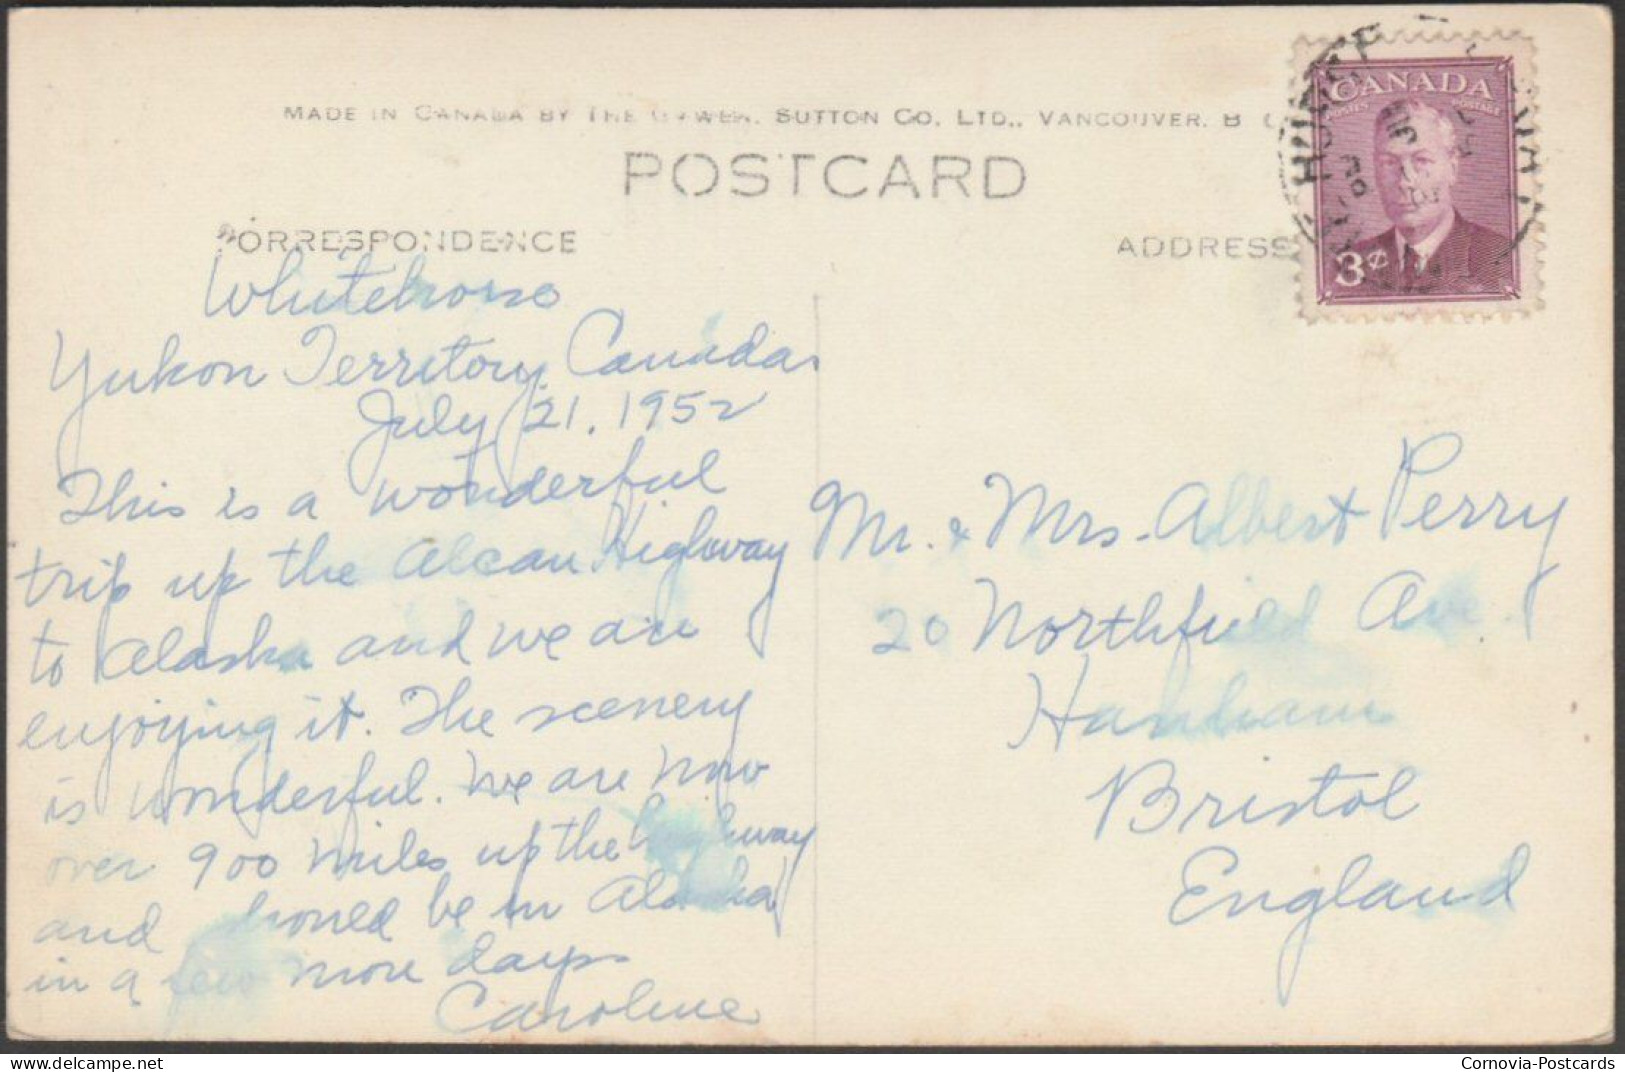 MADE IN CANADA BY THE GOWEN, SUTTON CO. LTD., VANCOUVER, B
POSTCARD
CORRESPONDENCE
ADDRESS
CANADA
POSTES POSTAGE
3¢
Whitehorse
Yukon Territory, Canada.
July 21, 1952
This is a wonderful
trip up the Alcan Highway
to Alaska and we are
enjoying it. The scenery
is wonderful. We are now
over 900 miles up the highway
and should be in Alaska
in a few more days
Caroline
Mr. & Mrs. Albert Perry
20 Northfield Ave.
Hanham
Bristol
England
delcampe.net
Cornovia-Postcards